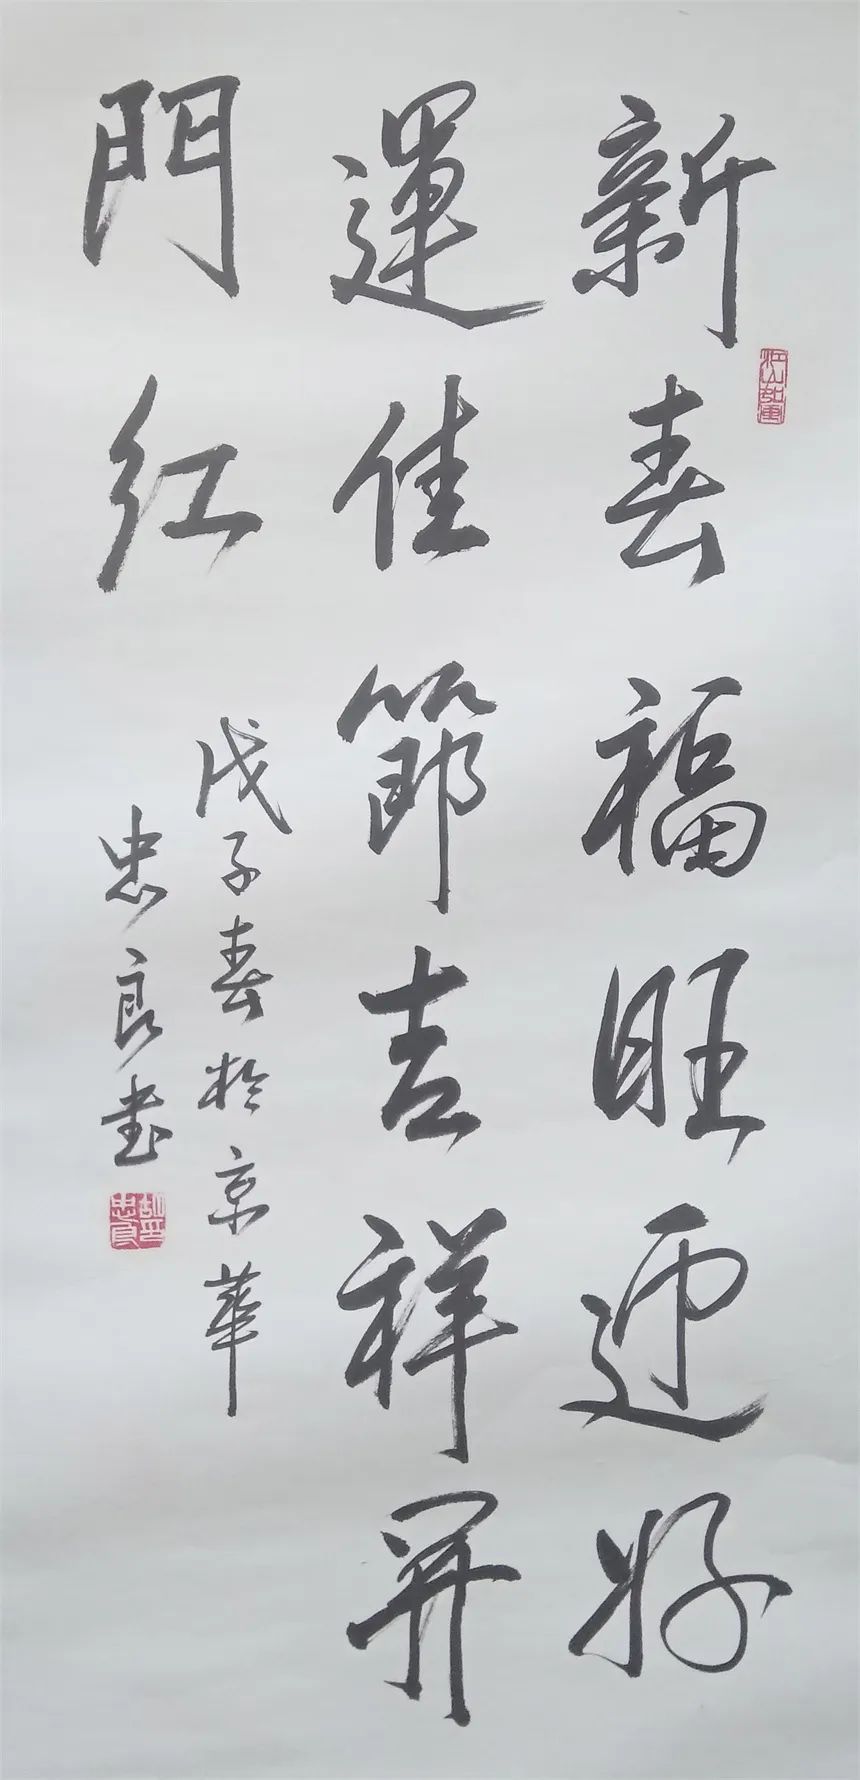 新春福旺迎好
運佳節吉祥開
門紅
戊子春於京華
忠良書